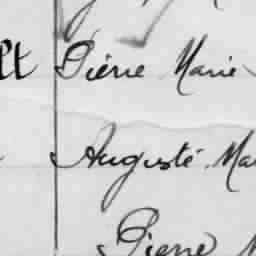 lt Pierre Marie
Auguste Ma
Pierre M